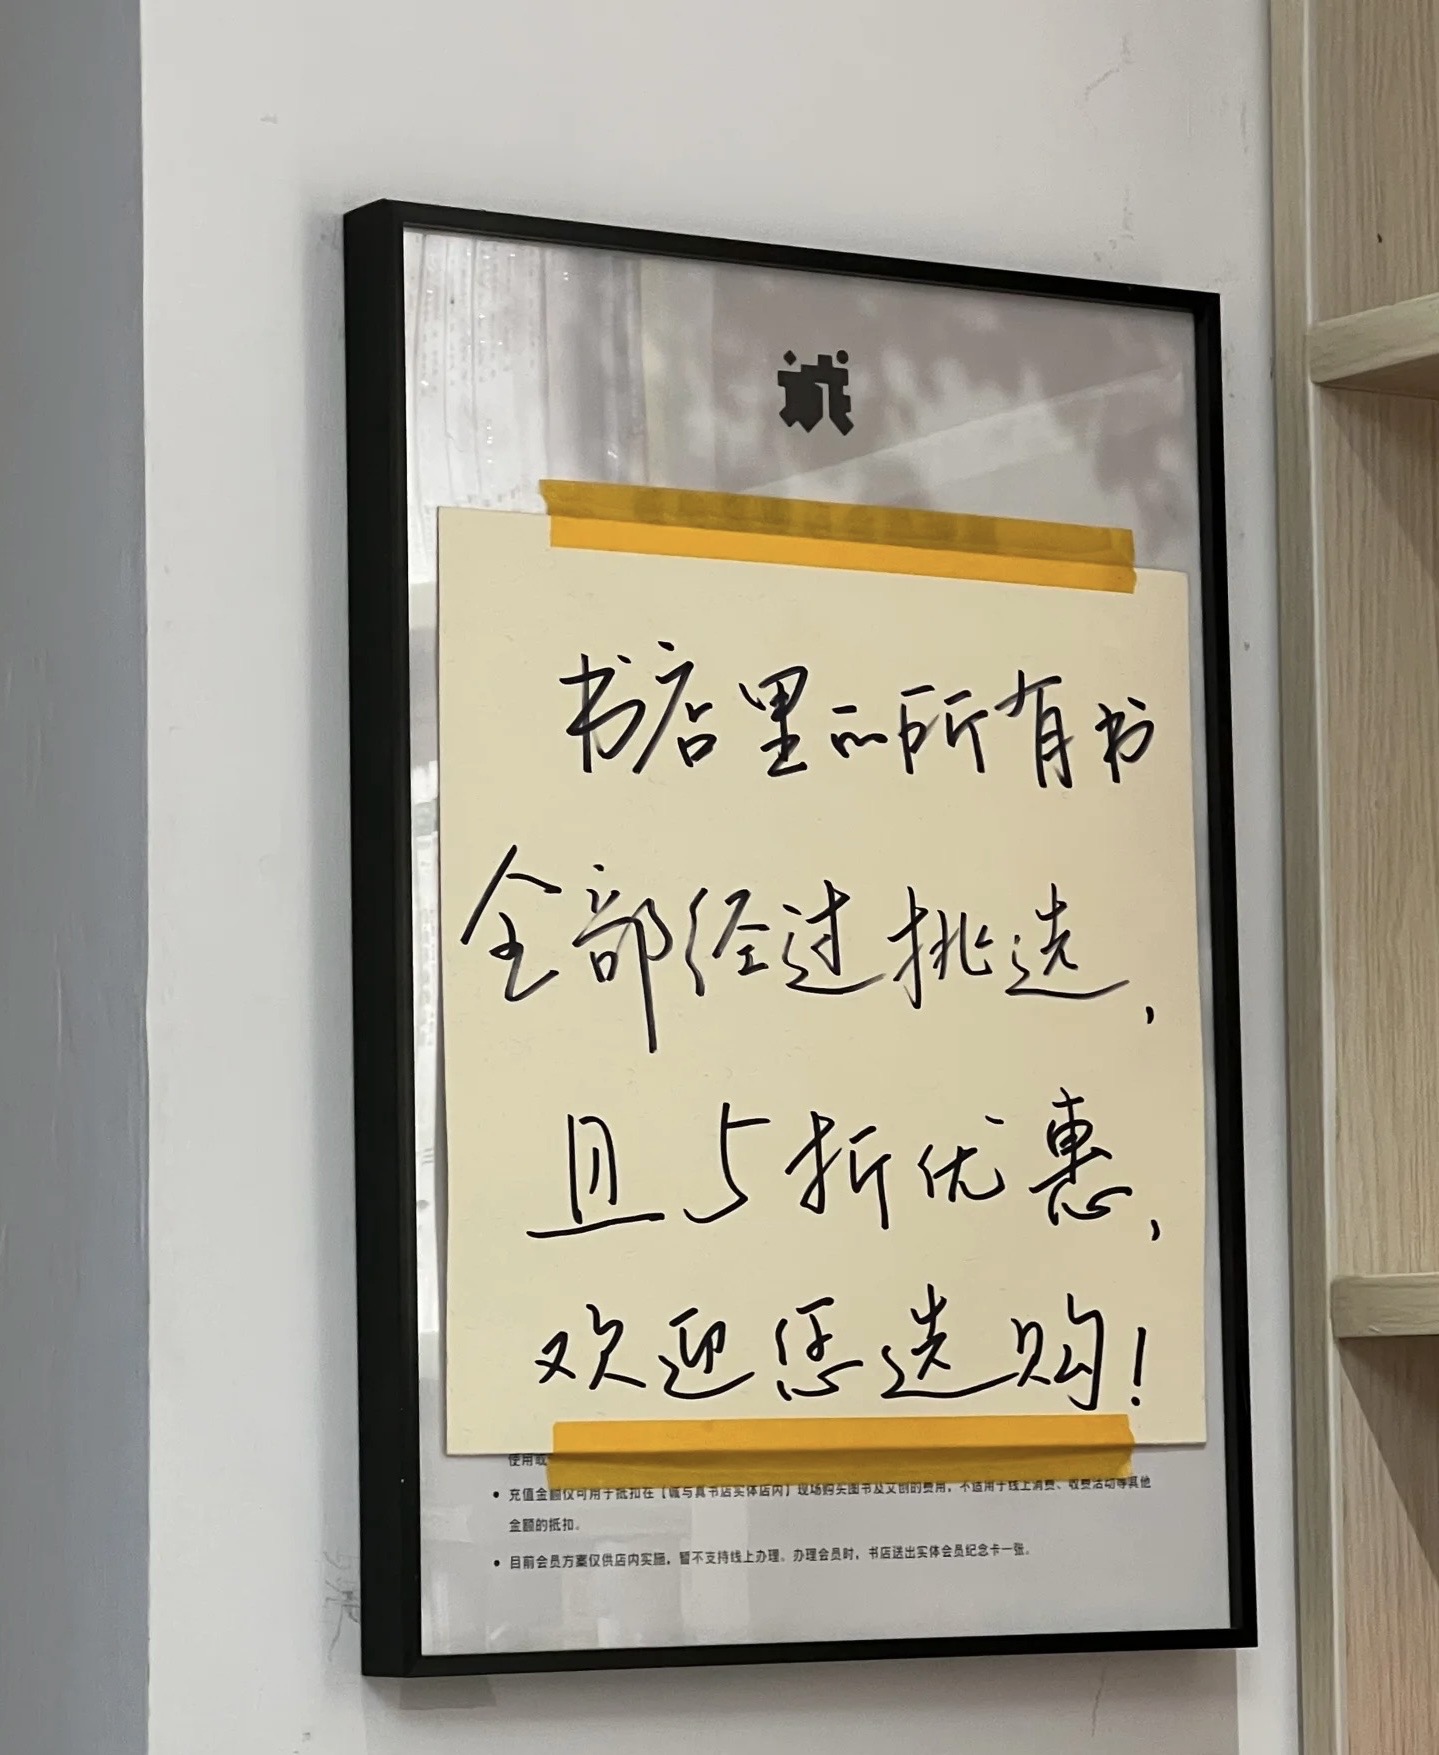 诚
书店里的所有书
全部经过挑选，
且5折优惠，
欢迎您选购！
使用
• 充值金额仅可用于抵扣在【诚与真书店实体店内】现场购买图书及文创的费用，不适用于线上消费、收费活动等其他
金额的抵扣。
• 目前会员方案仅供店内实施，暂不支持线上办理。办理会员时，书店送出实体会员纪念卡一张。